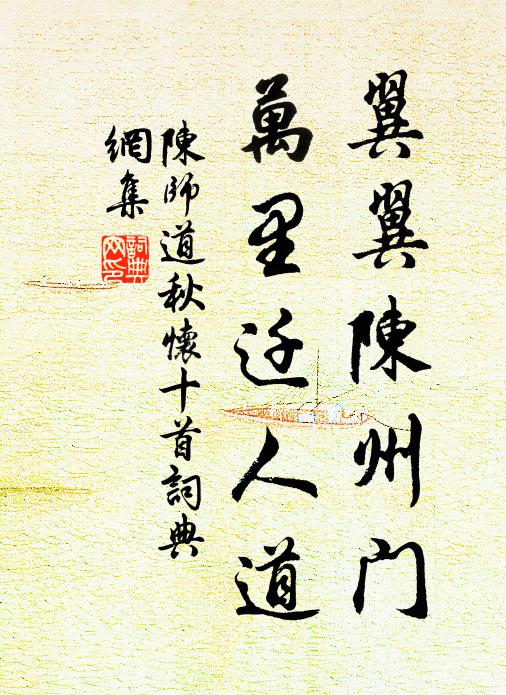 翼翼陳州门
萬里迁人道
陳師道秋懷十首詞典
網集
詞典
网印